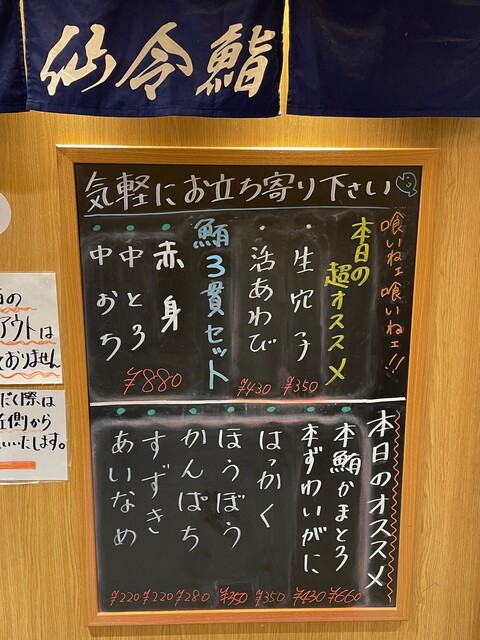 仙令鮨
気軽にお立ち寄り下さい
喰いねェ喰いねェ!!
本日の
超オススメ
・生穴子
¥350
・活あわび
¥430
鮪3貫セット
・赤身
・中とろ
・中おち
¥880
本日のオススメ
・本鮪かまとろ
¥660
・本ずわいがに
¥430
・はっかく
¥350
・ほうぼう
¥350
・かんぱち
¥280
・すずき
¥220
・あいなめ
¥220
アウトは
おりません
だく際は
側から
いいたします。